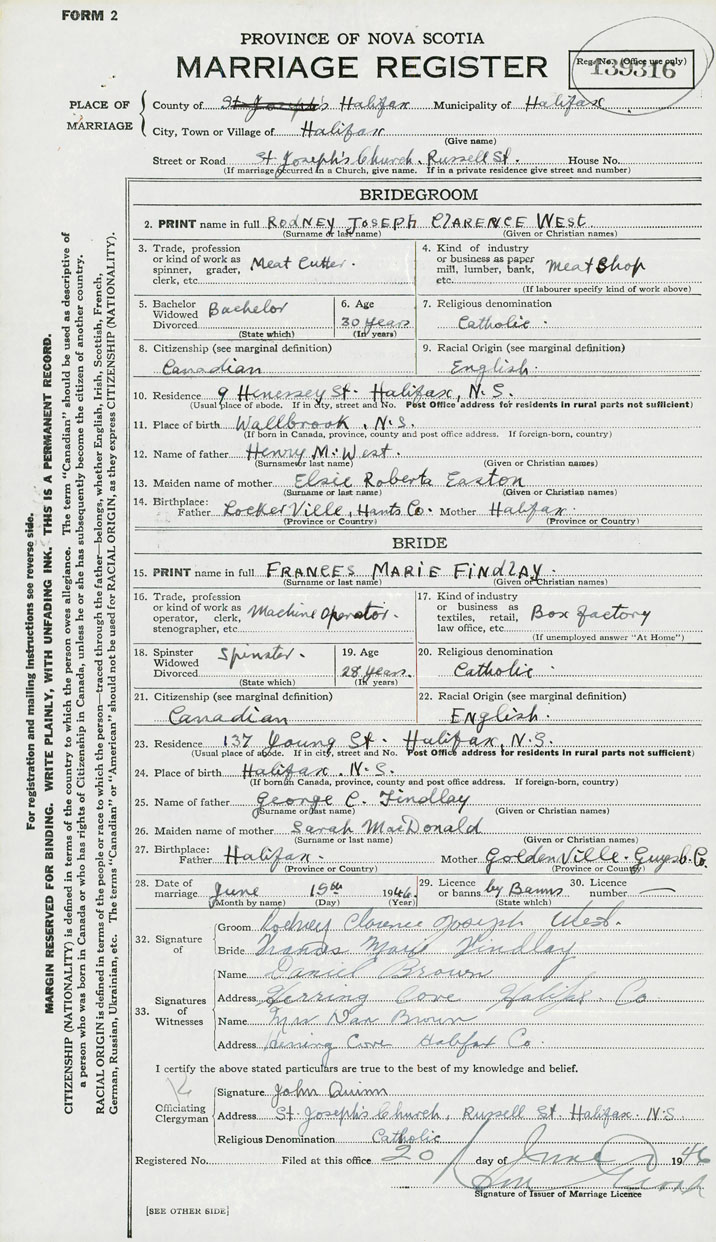 FORM 2
PROVINCE OF NOVA SCOTIA
MARRIAGE REGISTER
Reg. No. (Office use only)
139316
PLACE OF MARRIAGE
County of St Joseph's Halifax Municipality of Halifax
City, Town or Village of Halifax
(Give name)
Street or Road St Joseph's Church, Russell St. House No.
(If marriage occurred in a Church, give name. If in a private residence give street and number)
BRIDEGROOM
2. PRINT name in full RODNEY JOSEPH CLARENCE WEST
(Surname or last name) (Given or Christian names)
3. Trade, profession or kind of work as spinner, grader, clerk, etc. Meat Cutter.
4. Kind of industry or business as paper mill, lumber, bank, etc. Meat Shop
(If labourer specify kind of work above)
5. Bachelor Widowed Divorced Bachelor
(State which)
6. Age 30 years
(In years)
7. Religious denomination
Catholic.
8. Citizenship (see marginal definition)
Canadian
9. Racial Origin (see marginal definition)
English.
10. Residence 9 Henessey St. Halifax, N.S.
(Usual place of abode. If in city, street and No. Post Office address for residents in rural parts not sufficient)
11. Place of birth Wallbrook, N.S.
(If born in Canada, province, county and post office address. If foreign-born, country)
12. Name of father Henry M. West.
(Surname or last name) (Given or Christian names)
13. Maiden name of mother Elsie Roberta Easton
(Surname or last name) (Given or Christian names)
14. Birthplace: Father Locker Ville, Hants Co. Mother Halifax.
(Province or Country) (Province or Country)
BRIDE
15. PRINT name in full FRANCES MARIE FINDLAY.
(Surname or last name) (Given or Christian names)
16. Trade, profession or kind of work as operator, clerk, stenographer, etc. Machine Operator.
17. Kind of industry or business as textiles, retail, law office, etc. Box factory
(If unemployed answer "At Home")
18. Spinster Widowed Divorced Spinster.
(State which)
19. Age 28 years.
(In years)
20. Religious denomination
Catholic.
21. Citizenship (see marginal definition)
Canadian
22. Racial Origin (see marginal definition)
English.
23. Residence 137 Young St. Halifax, N.S.
(Usual place of abode. If in city, street and No. Post Office address for residents in rural parts not sufficient)
24. Place of birth Halifax, N.S.
(If born in Canada, province, county and post office address. If foreign-born, country)
25. Name of father George C. Findlay
(Surname or last name) (Given or Christian names)
26. Maiden name of mother Sarah MacDonald
(Surname or last name) (Given or Christian names)
27. Birthplace: Father Halifax. Mother Golden Ville. Guysb. Co.
(Province or Country) (Province or Country)
28. Date of marriage June 19th 1946.
(Month by name) (Day) (Year)
29. Licence or banns by Banns
(State which)
30. Licence number —
32. Signature of
Groom Rodney Clarence Joseph West.
Bride Frances Marie Findlay
33. Signatures of Witnesses
Name Daniel Brown
Address Herring Cove Halifx. Co
Name Mrs Dan Brown
Address Herring Cove Halifax Co.
I certify the above stated particulars are true to the best of my knowledge and belief.
Officiating Clergyman
Signature John Quinn
Address St. Joseph's Church, Russell St. Halifax. N.S.
Religious Denomination Catholic
Registered No. Filed at this office 20 day of June 1946
Signature of Issuer of Marriage Licence
[SEE OTHER SIDE]
For registration and mailing instructions see reverse side.
MARGIN RESERVED FOR BINDING. WRITE PLAINLY, WITH UNFADING INK. THIS IS A PERMANENT RECORD.
CITIZENSHIP (NATIONALITY) is defined in terms of the country to which the person owes allegiance. The term "Canadian" should be used as descriptive of
a person who was born in Canada or who has rights of Citizenship in Canada, unless he or she has subsequently become the citizen of another country.
RACIAL ORIGIN is defined in terms of the people or race to which the person—traced through the father—belongs, whether English, Irish, Scottish, French,
German, Russian, Ukrainian, etc. The terms "Canadian" or "American" should not be used for RACIAL ORIGIN, as they express CITIZENSHIP (NATIONALITY).